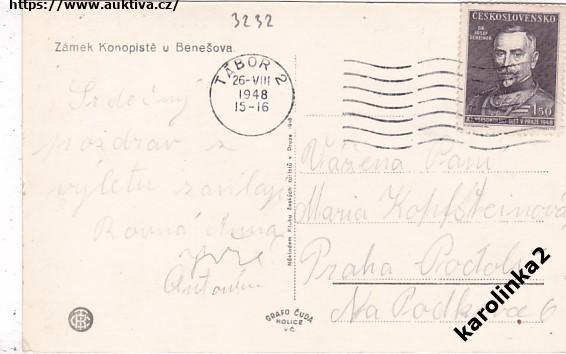 https://www.auktiva.cz/
3232
Zámek Konopiště u Benešova.
TÁBOR 2
26-VIII
1948
15-16
ČESKOSLOVENSKO
DR. JOSEF SCHEINER
1.50
SLET V PRAZE 1948
Srdečný
pozdrav z
výletu zasílají
Rovná Anna
Antonín
Nákladem Klubu českých turistů v Praze
Vážená Paní
Maria Kopfsteinová
Praha Podolí
Na Podkovce 6
GRAFO ČUDA
HOLICE
V Č.
karolinka2